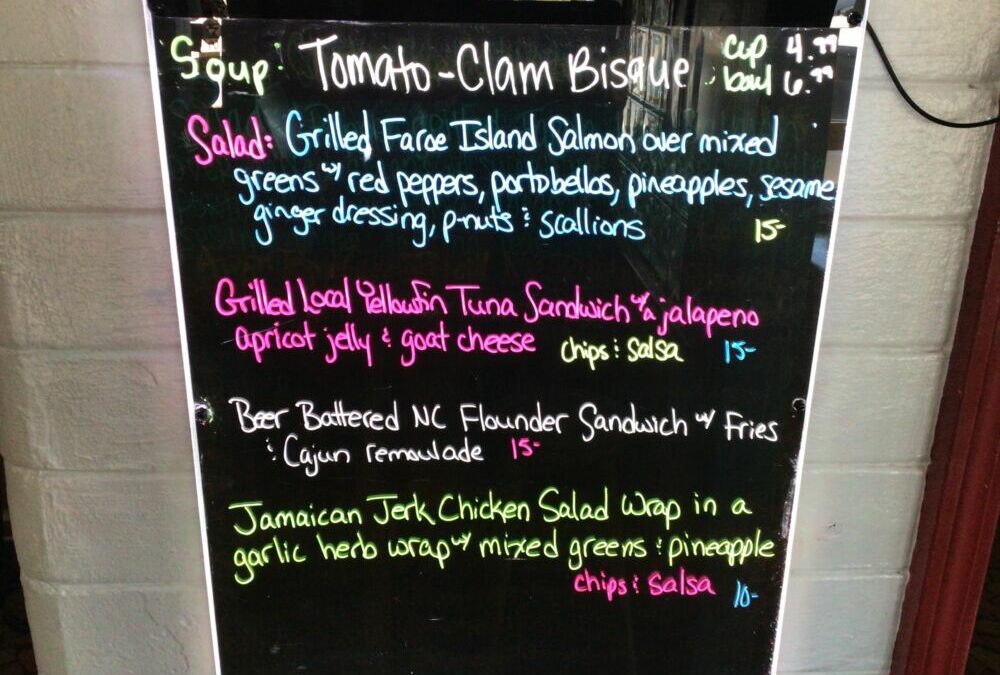 Soup: Tomato-Clam Bisque cup 4.99
bowl 6.99
Salad: Grilled Faroe Island Salmon over mixed
greens w/ red peppers, portobellos, pineapples, sesame
ginger dressing, p-nuts & scallions 15-
Grilled Local Yellowfin Tuna Sandwich w/ a jalapeno
apricot jelly & goat cheese chips & salsa 15-
Beer Battered NC Flounder Sandwich w/ Fries
& Cajun remoulade 15-
Jamaican Jerk Chicken Salad Wrap in a
garlic herb wrap w/ mixed greens & pineapple
chips & salsa 10-